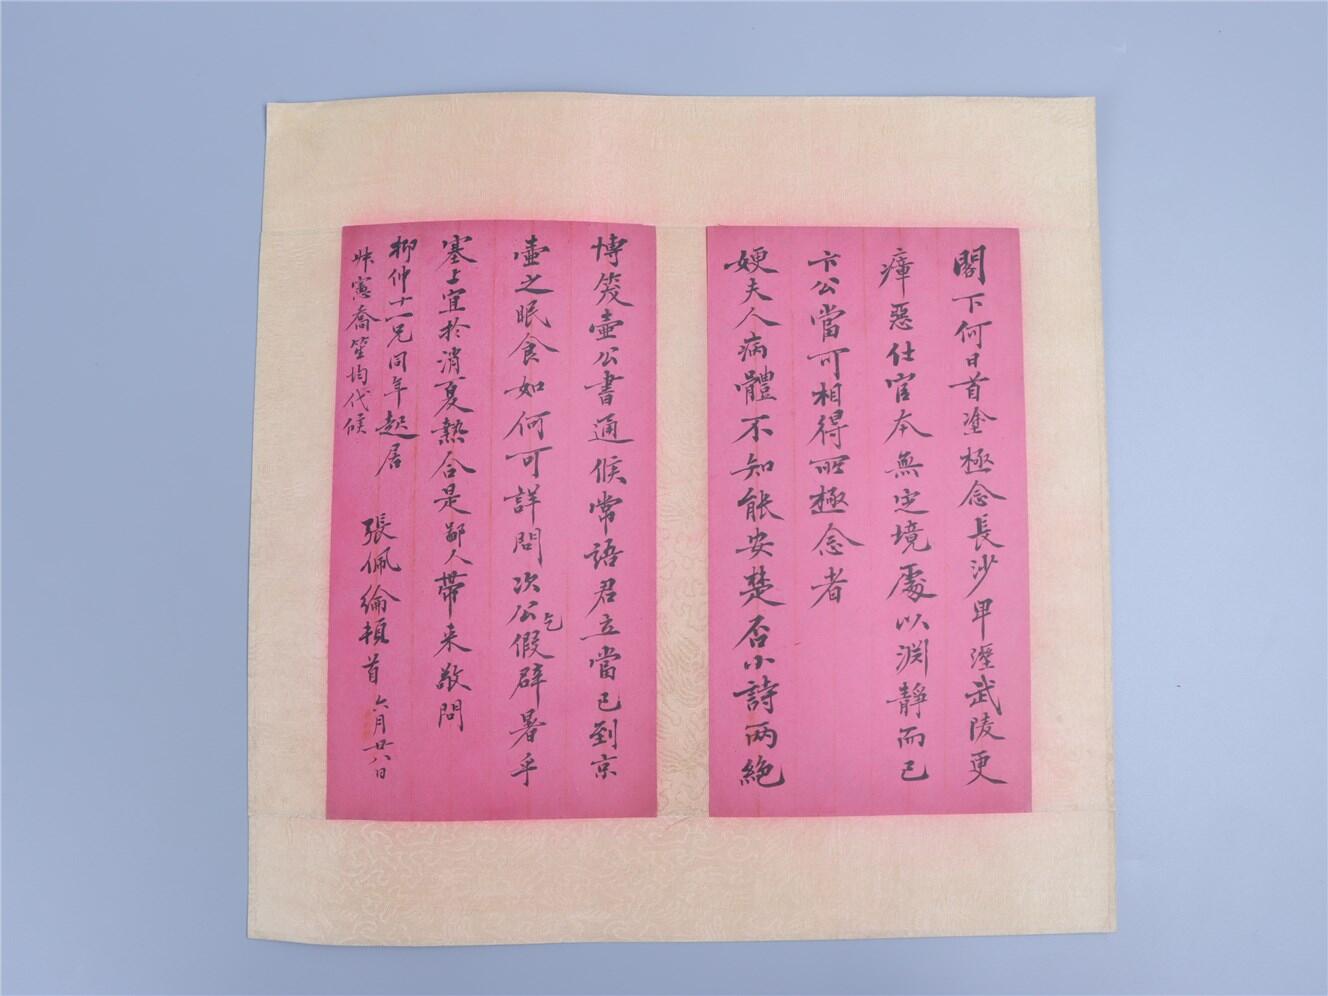 閣下何日首塗極念長沙卑溼武陵更
瘴惡仕宦本無定境處以淵靜而已
卞公當可相得所極念者
嫂夫人病體不知能安楚否小詩兩絕
博笑壺公書通候常語君立當已到京
壺之眠食如何可詳問次公乞假辟暑乎
塞上宜於消夏熱合是鄙人帶來敬問
柳仲十一兄同年起居
張佩綸頓首 六月廿八日
憲喬笙均代候